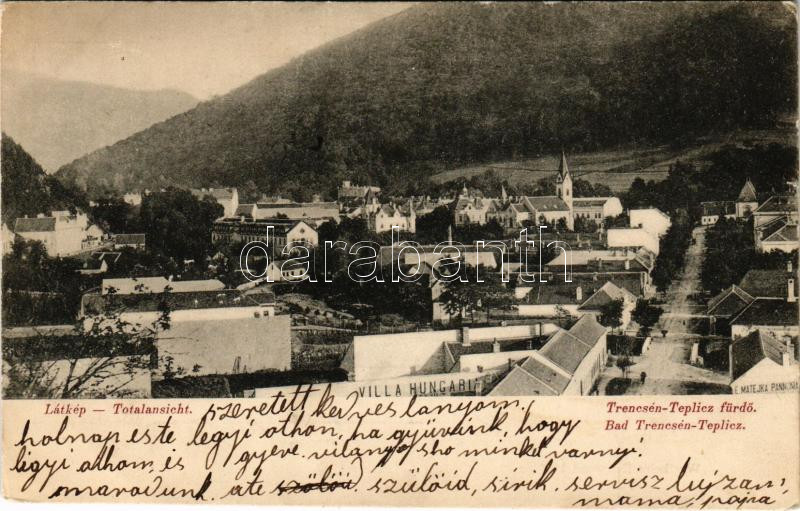 darabanth
VILLA HUNGARI
E MATEJKA PANNONIA
Látkép — Totalansicht.
Trencsén-Teplicz fürdő.
Bad Trencsén-Teplicz.
szeretett kedves lanyom,
holnap este legyi othon, ha gyüvünk, hogy
ligyi othom, és gyeve minket varnyi.
maradunk. ate szülöid, servisz
mama, papa